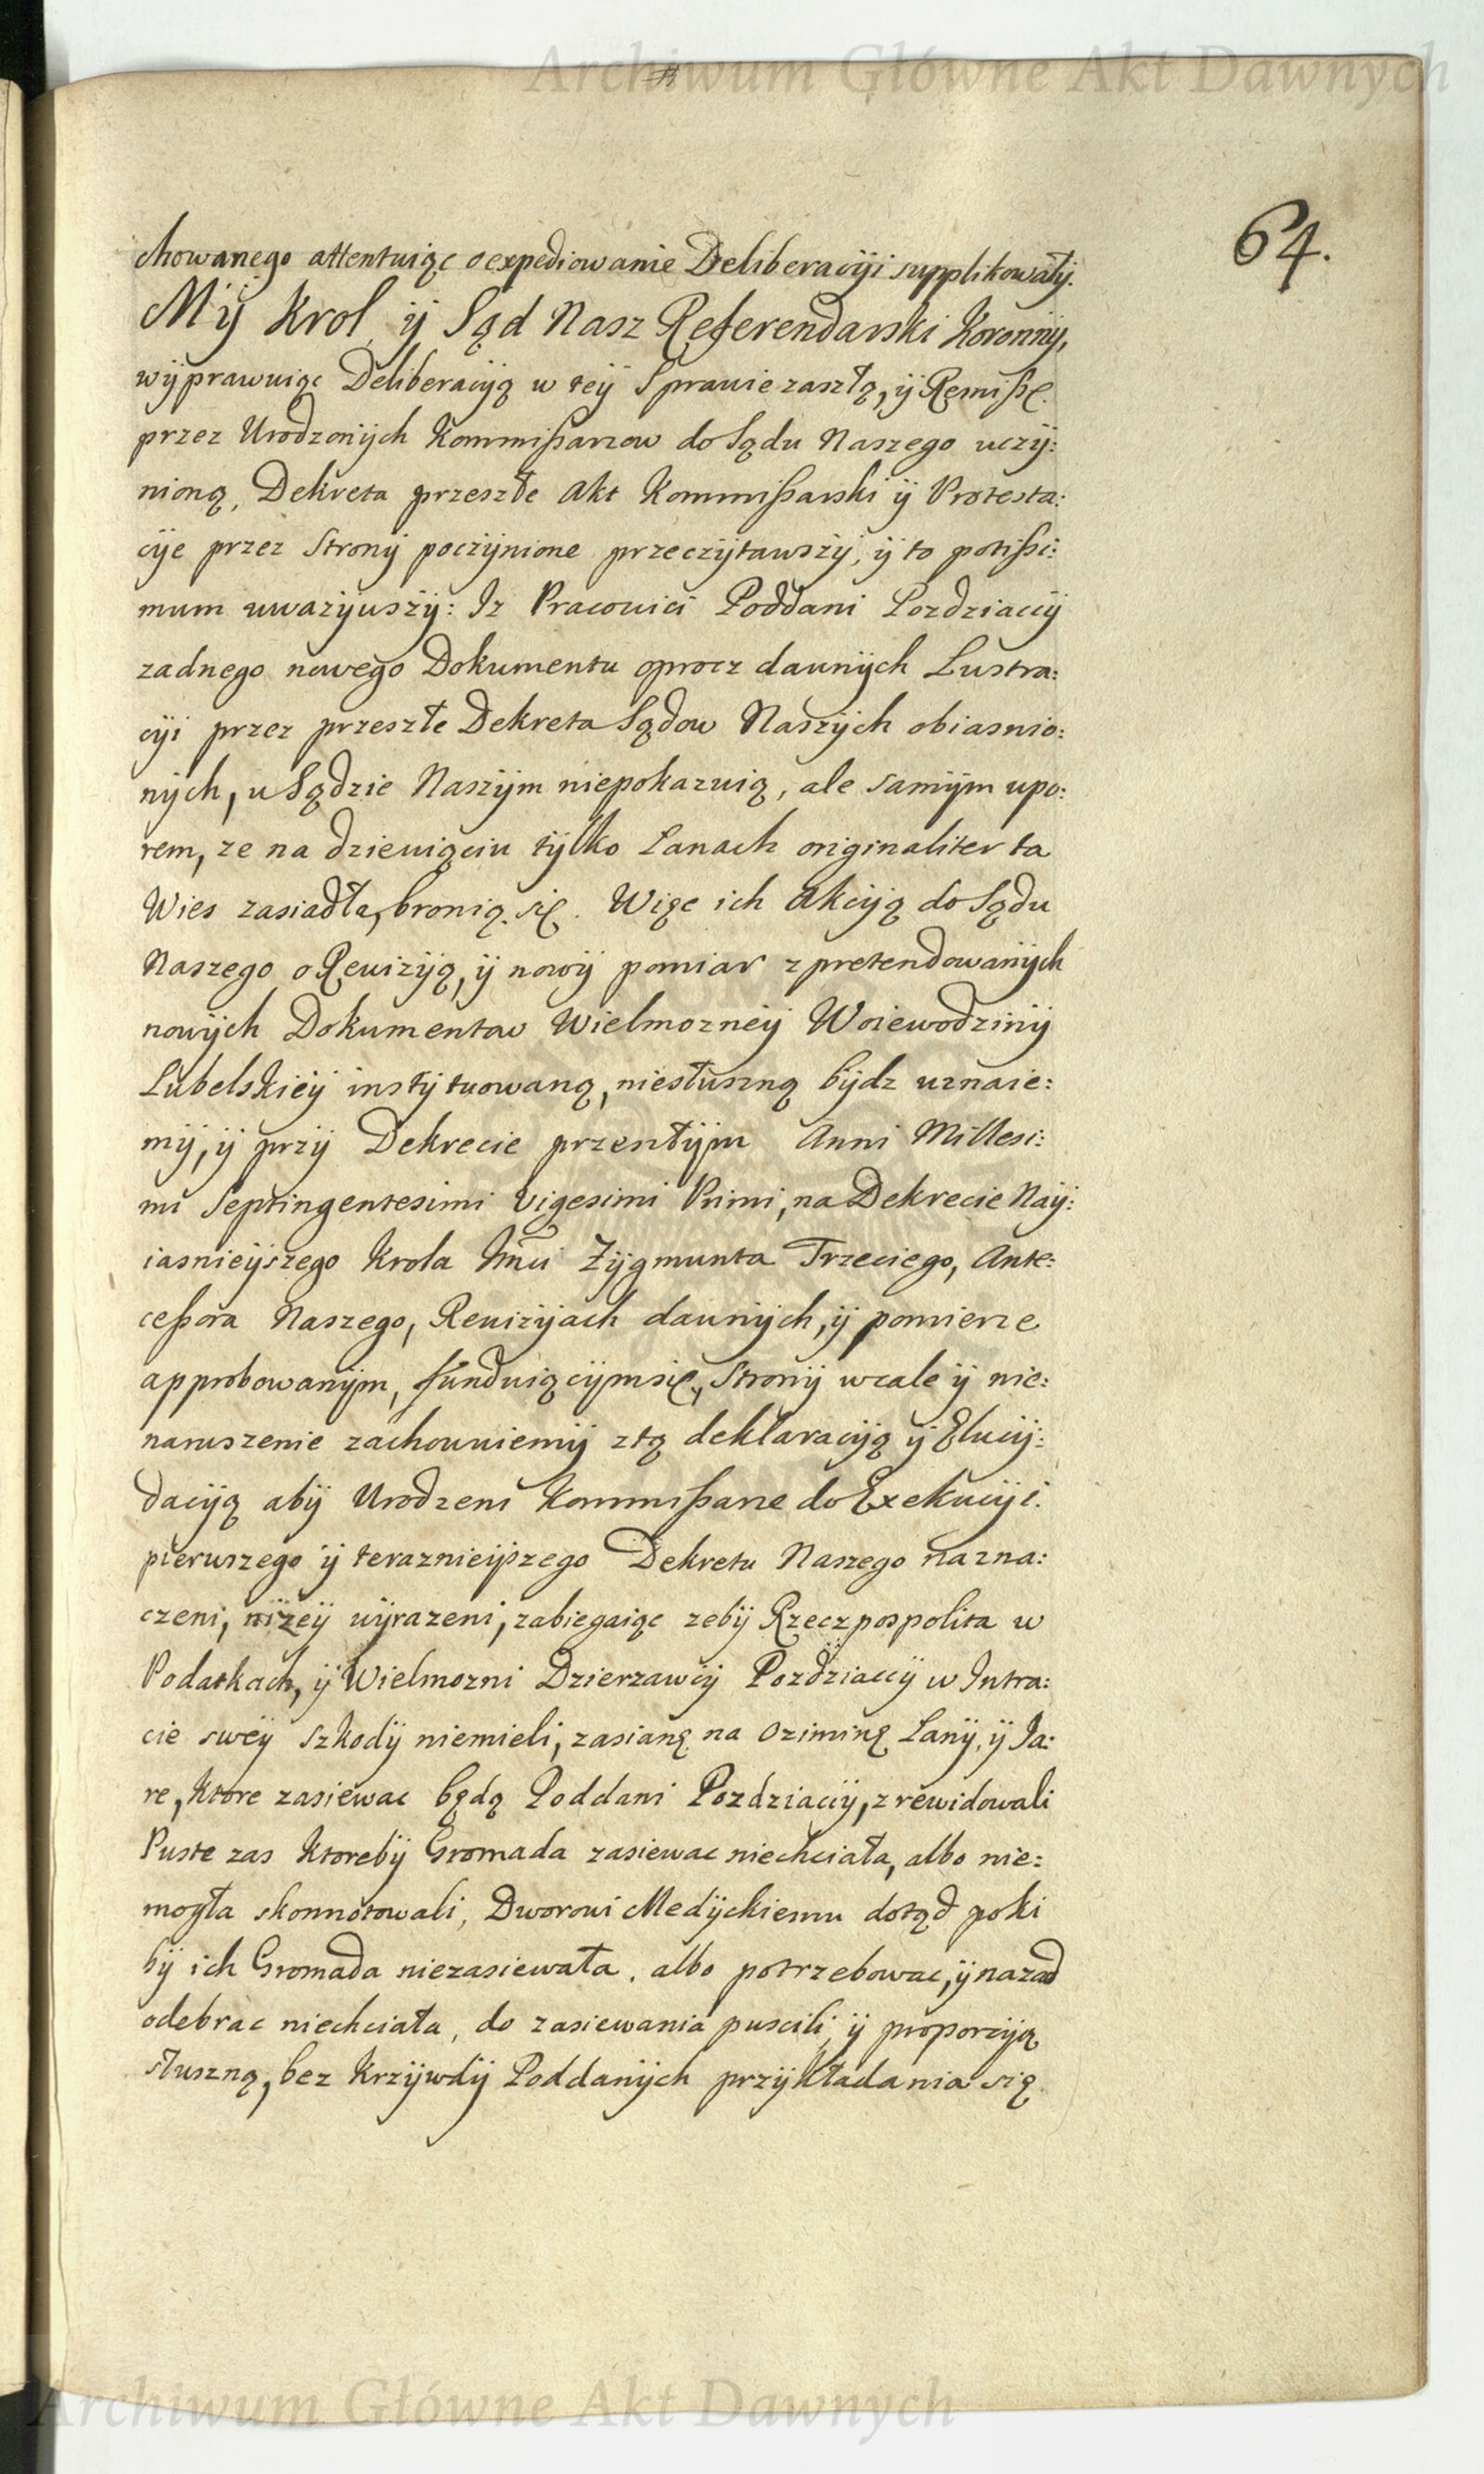 Archiwum Główne Akt Dawnych
64.
chowanego attentuiąc o expediowanie Deliberacÿi supplikowałÿ.
Mÿ Krol ÿ Sąd Nasz Referendarski Koronnÿ,
wÿprawuiąc Deliberacÿą w teÿ Sprawie zaszłą, ÿ Remißę
przez Urodzonÿch Kommißarzow do Sądu Naszego uczÿ:
nioną, Dekreta przeszłe Akt Kommißarski ÿ Protesta:
cÿe przez Stronÿ poczÿnione przeczÿtawszÿ, ÿ to potißi:
mum uwazÿwszÿ: Iz Pracowici Poddani Pozdziaccÿ
zadnego nowego Dokumentu oprocz dawnÿch Lustra:
cÿi przez przeszłe Dekreta Sądow Naszÿch obiasnio:
nÿch, w Sądzie Naszÿm niepokazuią, ale samÿm upo:
rem, ze na dziewiąciu tÿlko Lanach originaliter ta
Wies zasiadła, bronią się. Więc ich Akcÿą do Sądu
Naszego o Rewizÿą, ÿ nowÿ pomiar z pretendowanÿch
nowÿch Dokumentow Wielmozneÿ Woiewodzinÿ
Lubelskieÿ instÿtuowaną, niesłuszną bÿdz uznaie:
mÿ, ÿ przÿ Dekrecie przeszłÿm Anni Millesi:
mi Septingentesimi Vigesimi Primi, na Dekrecie Naÿ:
iasnieÿszego Krola Jmci Zÿgmunta Trzeciego, Ante:
ceßora Naszego, Rewizÿach dawnÿch, ÿ pomierze
approbowanÿm, funduiącÿm się, Stronÿ wcale ÿ nie:
naruszenie zachowuiemÿ z tą deklaracÿą ÿ Elucÿ:
dacÿą abÿ Urodzeni Kommißarze do Exekucÿi
pierwszego ÿ teraznieÿszego Dekretu Naszego nazna:
czeni, nizeÿ wÿrazeni, zabiegaiąc zebÿ Rzeczpospolita w
Podatkach, ÿ Wielmozni Dzierzawcÿ Pozdziaccÿ w Intra:
cie sweÿ szkodÿ niemieli, zasianę na oziminę Lanÿ, ÿ Ja:
re, ktore zasiewac będą Poddani Pozdziaccÿ, zrewidowali
Puste zas ktorebÿ Gromada zasiewac niechciała, albo nie:
mogła skonnotowali, Dworowi Medÿckiemu dotąd poki
bÿ ich Gromada niezasiewała, albo potrzebowac, ÿ nazad
odebrac niechciała, do zasiewania puscili, ÿ proporcÿą
słuszną, bez krzÿwdÿ Poddanÿch przÿkładania się
Archiwum Główne Akt Dawnych